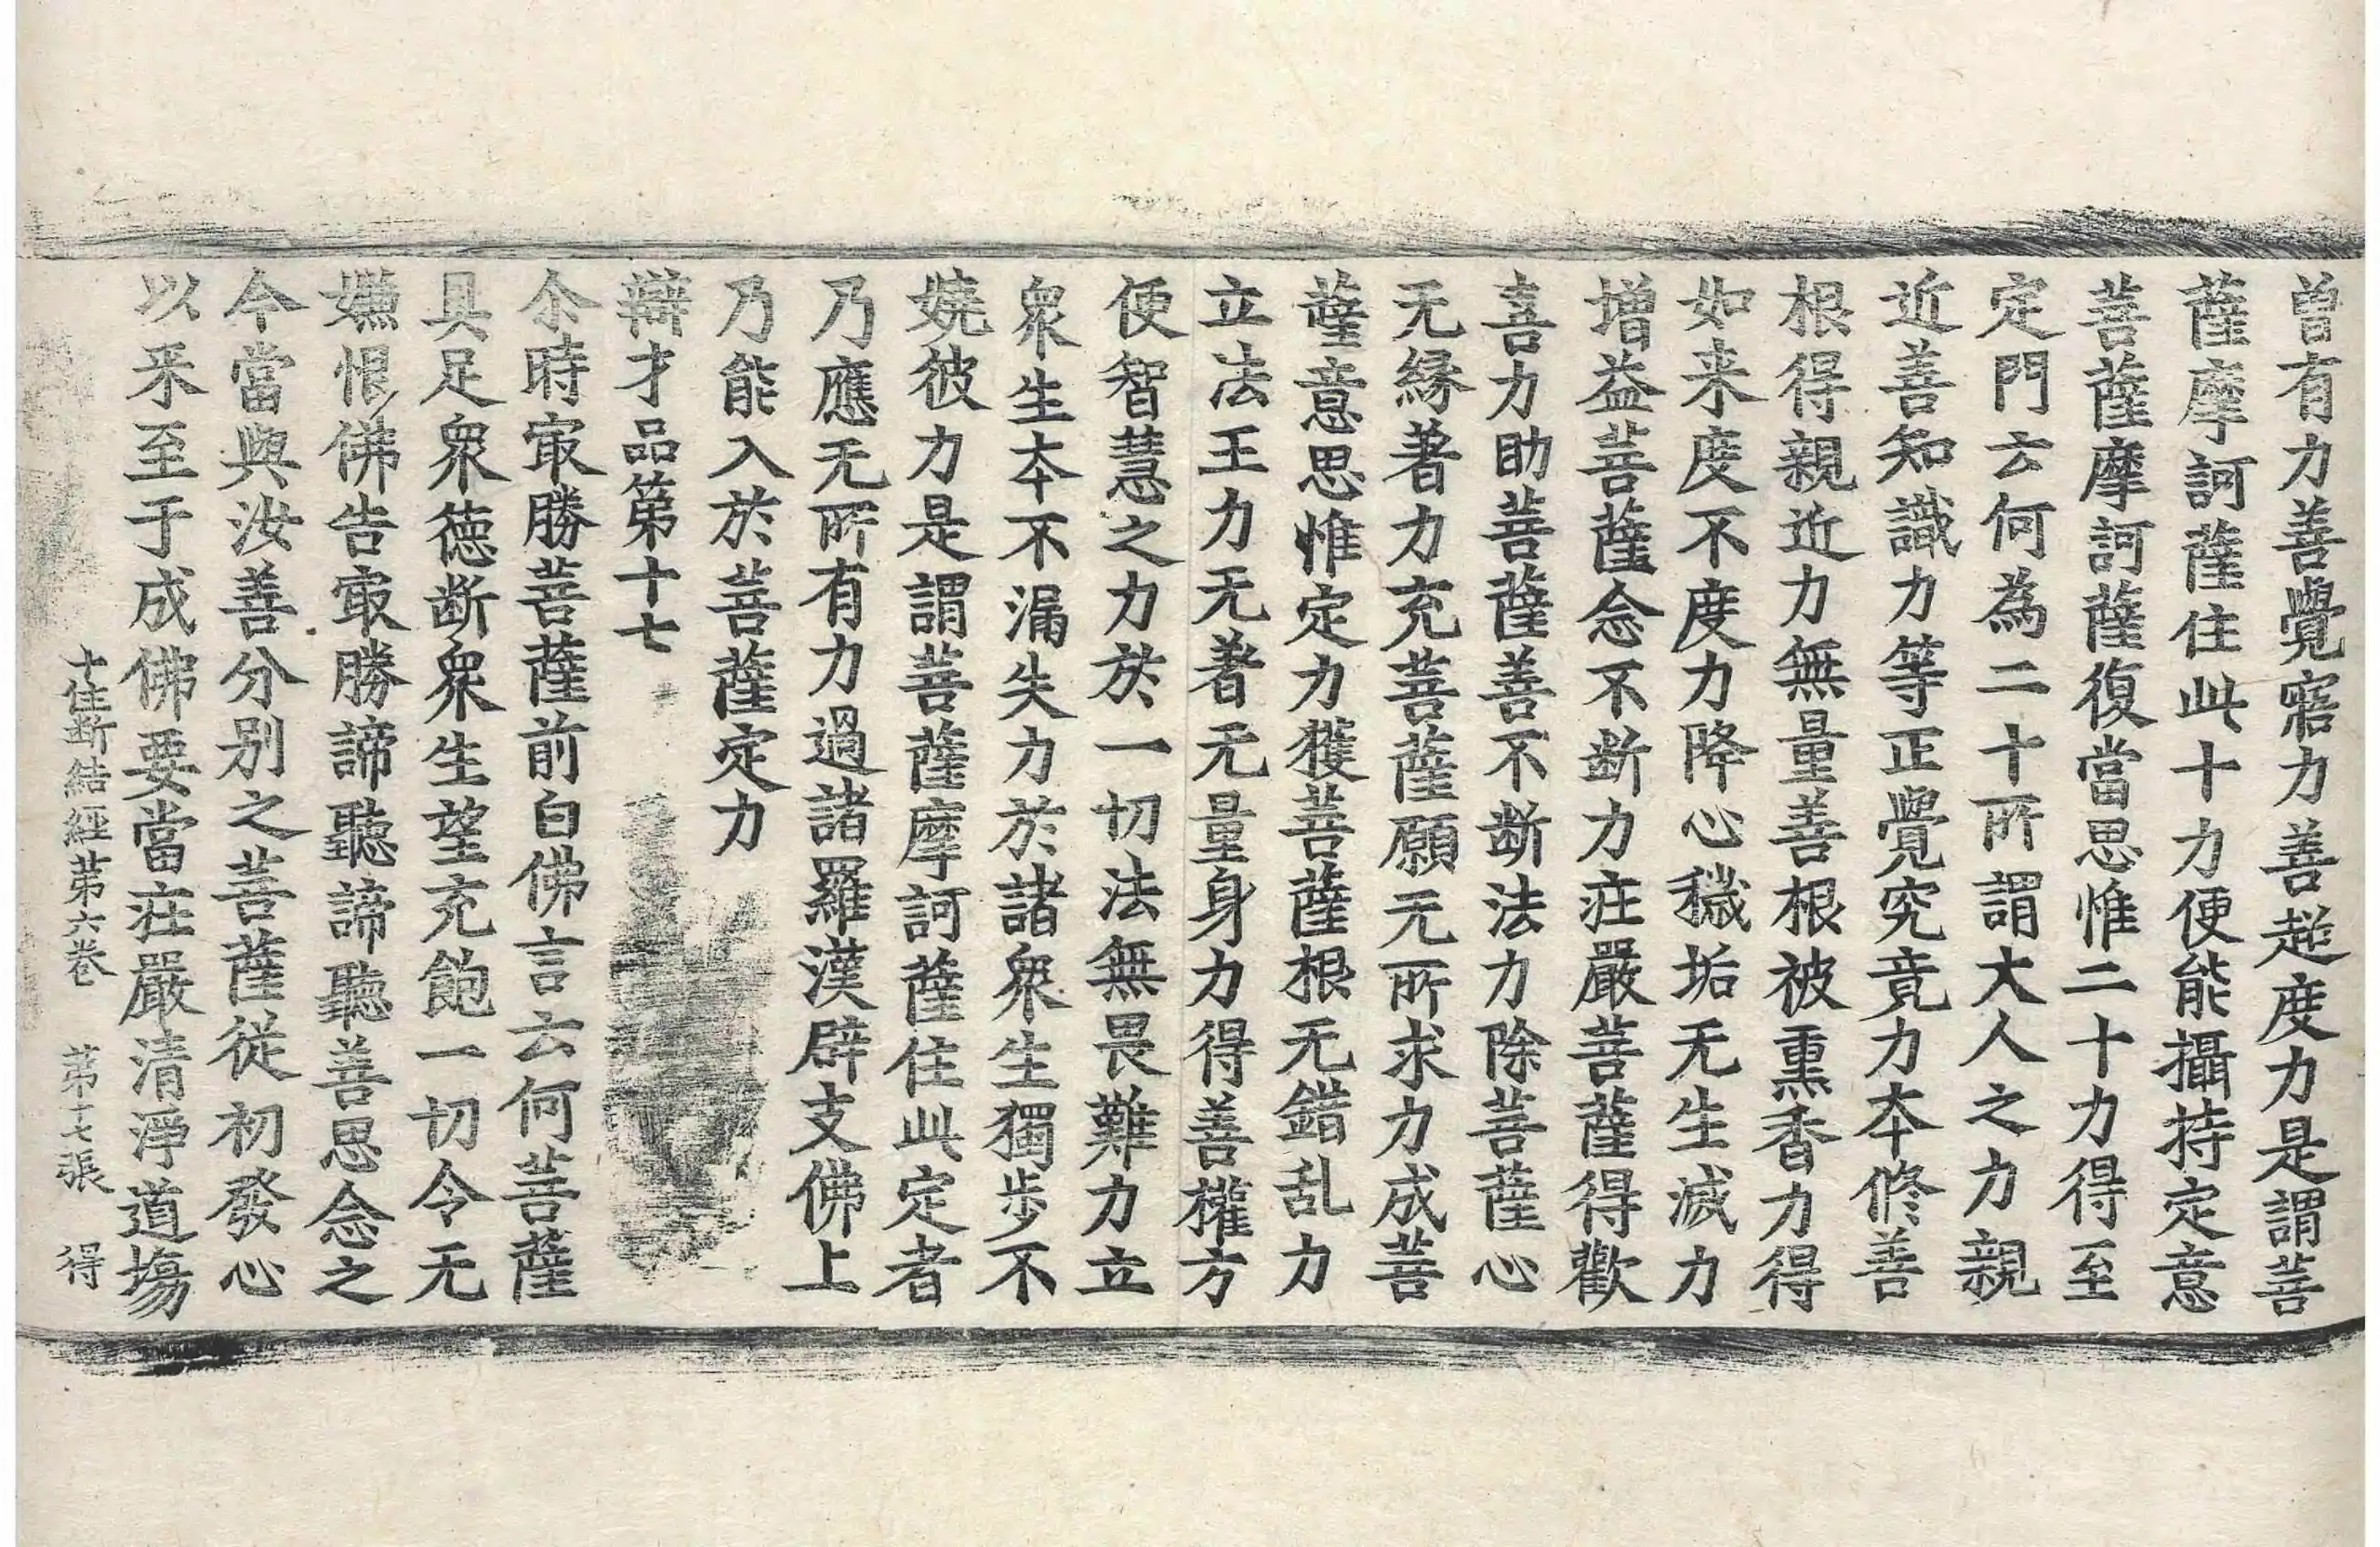 曾有力善覺寤力善超度力是謂菩
薩摩訶薩住此十力便能攝持定意
菩薩摩訶薩復當思惟二十力得至
定門云何為二十所謂大人之力親
近善知識力等正覺究竟力本修善
根得親近力無量善根被熏香力得
如来度不度力降心穢垢无生滅力
增益菩薩念不断力庄嚴菩薩得歡
喜力助菩薩善不断法力除菩薩心
无縁著力充菩薩願无所求力成菩
薩意思惟定力獲菩薩根无錯乱力
立法王力无著无量身力得善權方
便智慧之力於一切法無畏難力立
衆生本不漏失力於諸衆生獨歩不
娆彼力是謂菩薩摩訶薩住此定者
乃應无所有力過諸羅漢辟支佛上
乃能入於菩薩定力
辯才品第十七
尒時㝡勝菩薩前白佛言云何菩薩
具足衆德断衆生望充飽一切令无
嫌恨佛告㝡勝諦聽諦聽善思念之
今當與汝善分別之菩薩従初發心
以来至于成佛要當莊嚴清淨道場
十住断結經第六卷　第十七張　得